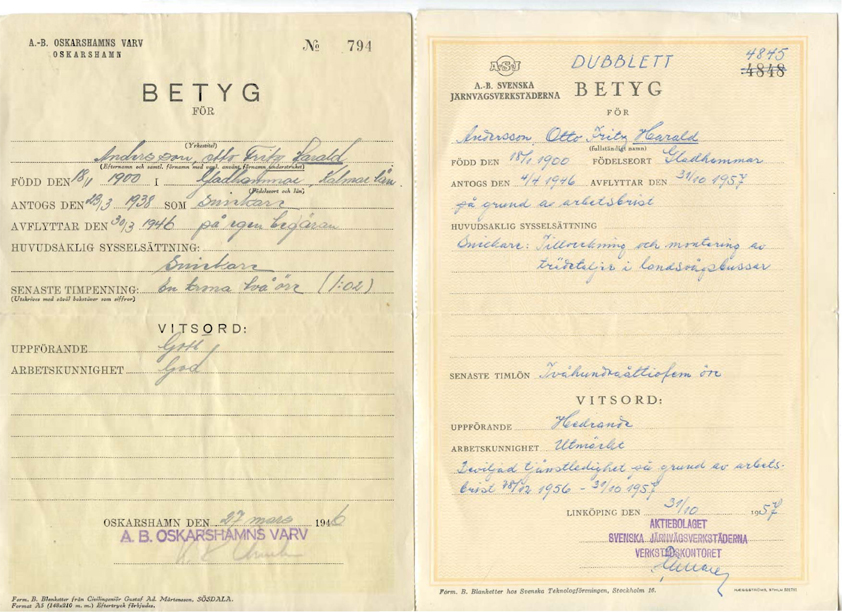 A.-B. OSKARSHAMNS VARV
OSKARSHAMN
№ 794
BETYG
FÖR
(Yrkestitel)
Andersson, Otto Fritz Harald
(Efternamn och samtl. förnamn med
FÖDD DEN 18/1 1900 I Gladhammar, Kalmar län.
(Födelseort och län)
ANTOGS DEN 23/3 1938 SOM Snickare
AVFLYTTAR DEN 30/3 1946 på egen begäran
HUVUDSAKLIG SYSSELSÄTTNING:
Snickare
SENASTE TIMPENNING: En krona två öre (1:02)
(Utskrives med såväl bokstäver som siffror)
VITSORD:
UPPFÖRANDE Gott
ARBETSKUNNIGHET God
OSKARSHAMN DEN 27 mars 1946
A. B. OSKARSHAMNS VARV
Form. B. Blanketter från Civilingeniör Gustaf Ad. Mårtensson, SÖSDALA.
Format A5 (148x210 m. m.) Eftertryck förbjudes.
ASJ
DUBBLETT
4845
4848
A.-B. SVENSKA
JÄRNVÄGSVERKSTÄDERNA
BETYG
FÖR
Andersson, Otto Fritz Harald
(fullständigt namn)
FÖDD DEN 18/1 1900 FÖDELSEORT Gladhammar
ANTOGS DEN 4/4 1946 AVFLYTTAR DEN 31/10 1957
på grund av arbetsbrist
HUVUDSAKLIG SYSSELSÄTTNING
Snickare: Tillverkning och montering av
trädetaljer i landsvägsbussar
SENASTE TIMLÖN Tvåhundraåttiofem öre
VITSORD:
UPPFÖRANDE Hedrande
ARBETSKUNNIGHET Utmärkt
Beviljad tjänstledighet på grund av arbets-
brist 1956 - 31/10 1957
LINKÖPING DEN 31/10 1957
AKTIEBOLAGET
SVENSKA JÄRNVÄGSVERKSTÄDERNA
VERKSTADSKONTORET
Form. B. Blanketter hos Svenska Teknologföreningen, Stockholm 16.